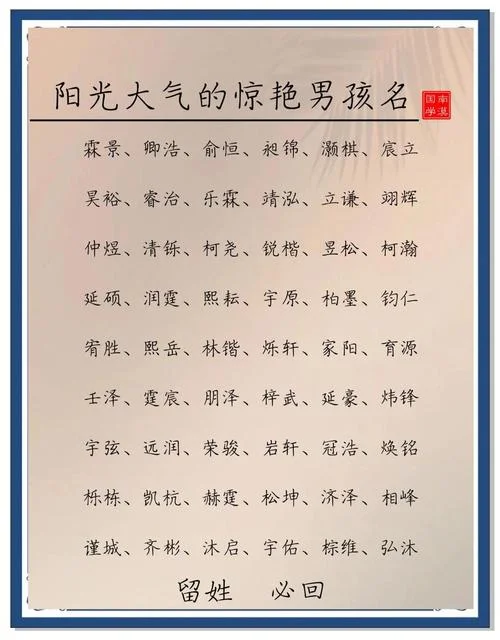 阳光大气的惊艳男孩名
国南
学漠
霖景、卿浩、俞恒、昶锦、灏棋、宸立
昊裕、睿治、乐霖、靖泓、立谦、翊辉
仲煜、清铄、柯尧、锐楷、昱松、柯瀚
延硕、润霆、熙耘、宇原、柏墨、钧仁
宥胜、熙岳、林锴、烁轩、家阳、育源
壬泽、霆宸、朋泽、梓武、延豪、炜锋
宇弦、远润、荣骏、岩轩、冠浩、焕铭
栎栋、凯杭、赫霆、松坤、济泽、相峰
谨城、齐彬、沐启、宇佑、棕维、弘沐
留姓 必回